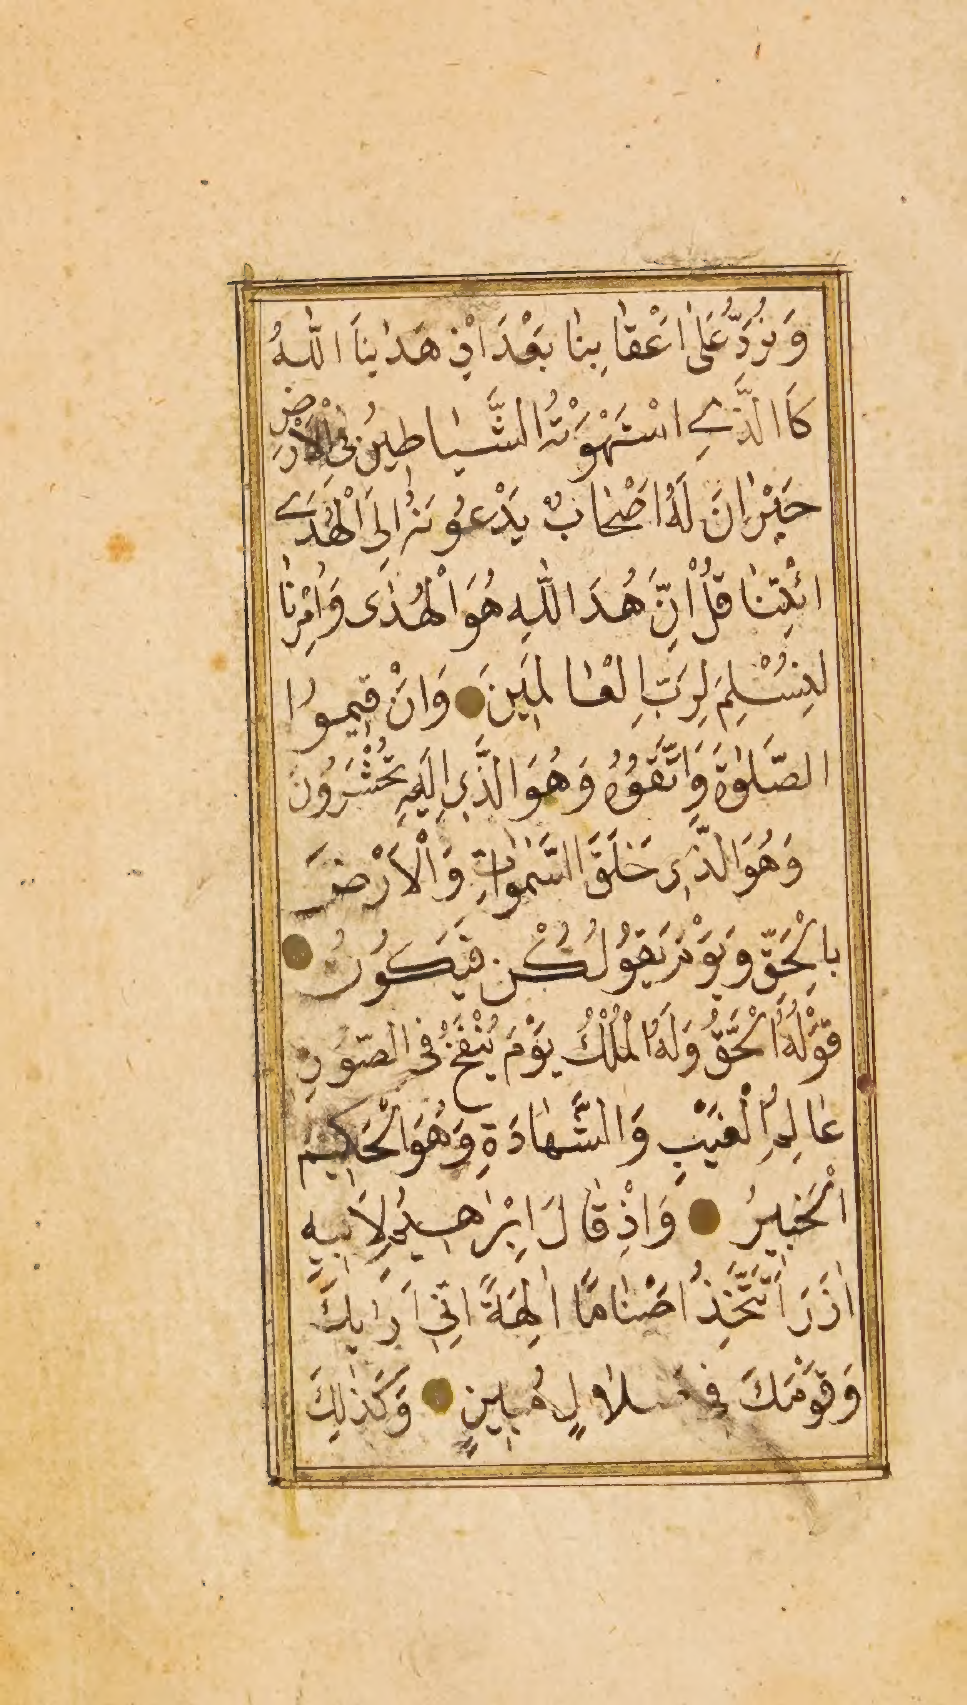 وَنُرَدُّ عَلٰى اَعْقَابِنَا بَعْدَ اِذْ هَدٰينَا اللّٰهُ
كَاالَّذٖى اسْتَهْوَتْهُ الشَّيَاطٖينُ فِى الْاَرْضِ
حَيْرَانَ لَهُ اَصْحَابٌ يَدْعُونَهُ اِلَى الْهُدَى
ائْتِنَا قُلْ اِنَّ هُدَ اللّٰهِ هُوَ الْهُدٰى وَاُمِرْنَا
لِنُسْلِمَ لِرَبِّ الْعَالَمٖينَ وَاَنْ قٖيمُوا
الصَّلٰوةَ وَاتَّقُوهُ وَهُوَ الَّذٖى اِلَيْهِ تُحْشَرُونَ
وَهُوَ الَّذٖى خَلَقَ السَّمٰوَاتِ وَالْاَرْضَ
بِالْحَقِّ وَيَوْمَ يَقُولُ كُنْ فَيَكُونُ
قَوْلُهُ الْحَقُّ وَلَهُ الْمُلْكُ يَوْمَ يُنْفَخُ فِى الصُّورِ
عَالِمُ الْغَيْبِ وَالشَّهَادَةِ وَهُوَ الْحَكٖيمُ
الْخَبٖيرُ وَاِذْ قَالَ اِبْرٰهٖيمُ لِاَبٖيهِ
اٰزَرَ اَتَتَّخِذُ اَصْنَامًا اٰلِهَةً اِنّٖى اَرٰيكَ
وَقَوْمَكَ فٖى ضَلَالٍ مُبٖينٍ وَكَذٰلِكَ